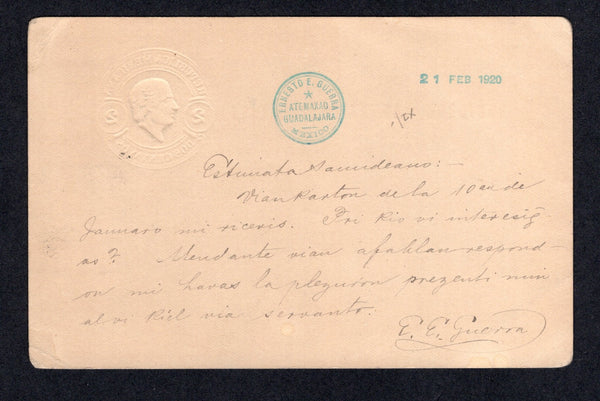 ERNESTO E. GUERRA
ATEMAXAC
GUADALAJARA
MEXICO
21 FEB 1920
Estimata Samideano:-
Vian karton de la 10an de
Januaro mi ricevis. Pri kio vi interesiĝ-
as? Mendante vian afablan respond-
on mi havas la plezuron prezenti min
al vi kiel via servanto.
E. E. Guerra